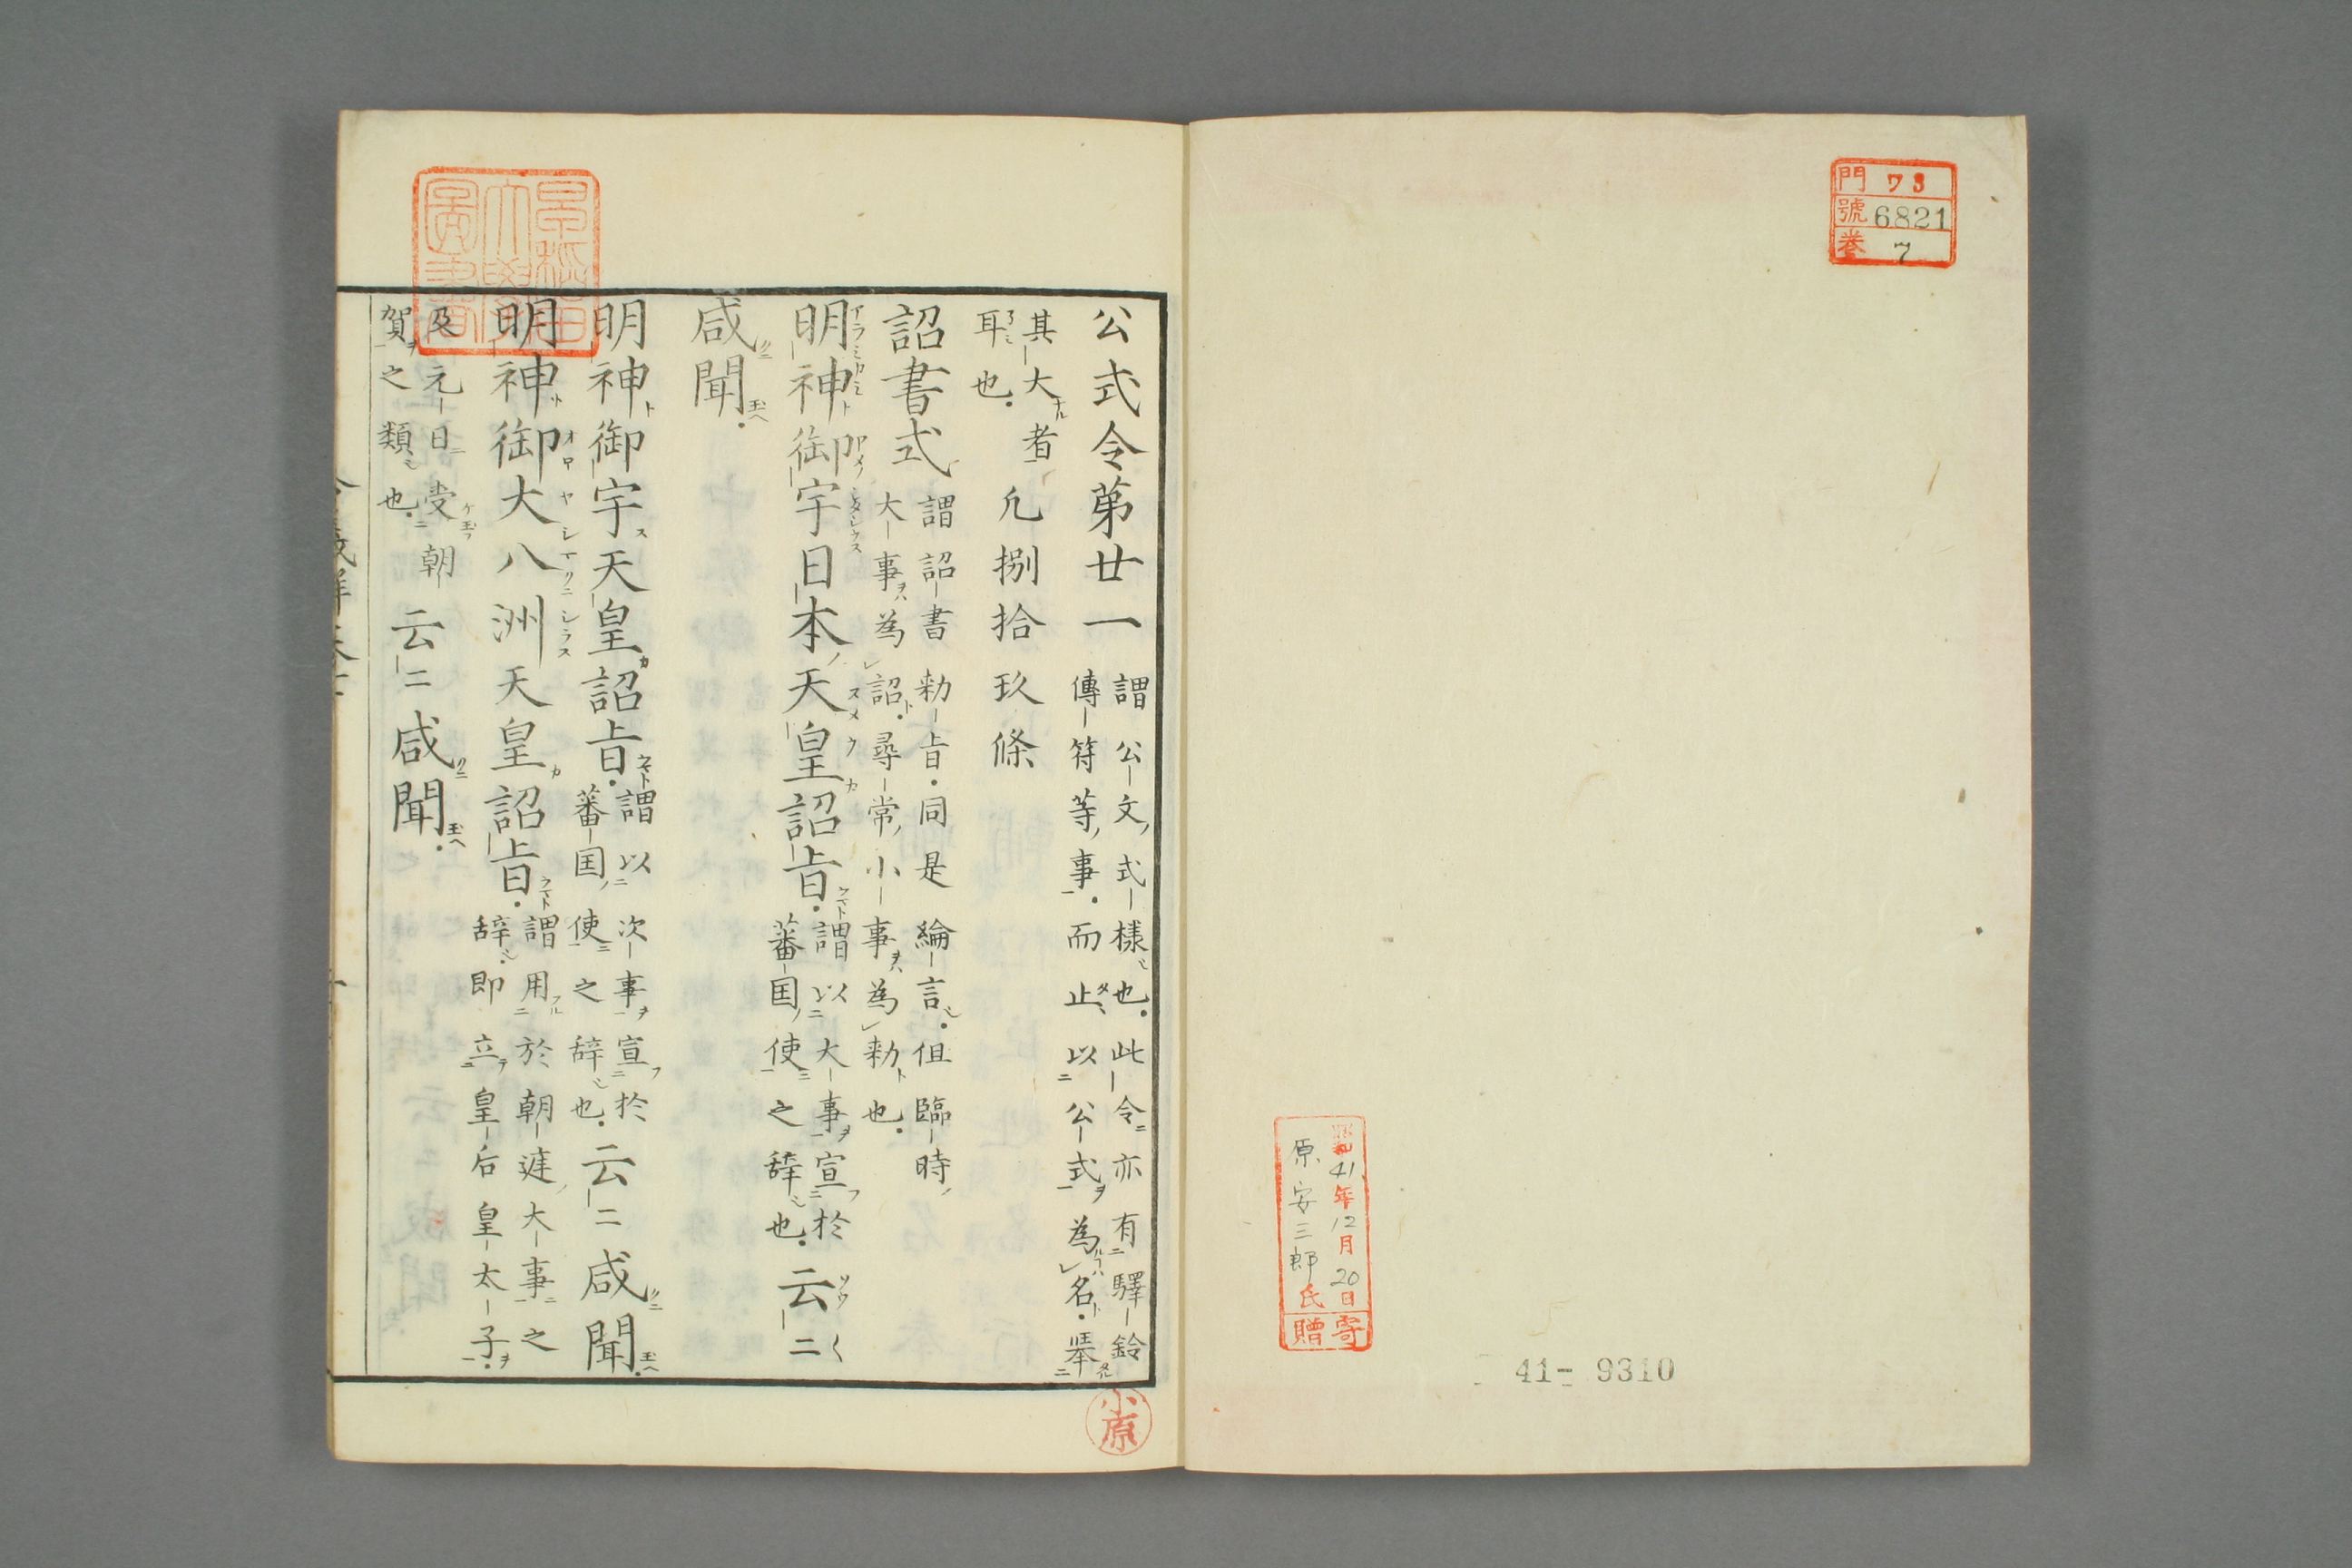 門 73
號 6821
卷 7
昭和41年12月20日
原 安三郎氏
寄贈
41- 9310
公式令第廿一 謂公文式樣也此令亦有驛鈴
傳符等事而止以公式為名舉
其大者
耳也 凢捌拾玖條
詔書式 謂詔書勅旨同是綸言但臨時
大事為詔尋常小事為勅也
明神御宇日本天皇詔旨 謂以大事宣於
蕃国使之辞也 云二
咸聞
明神御宇天皇詔旨 謂以次事宣於
蕃国使之辞也 云二咸聞
明神御大八洲天皇詔旨 謂用於朝庭大事之
辞即立皇后皇太子
及元日受朝
賀之類也 云二咸聞
小原